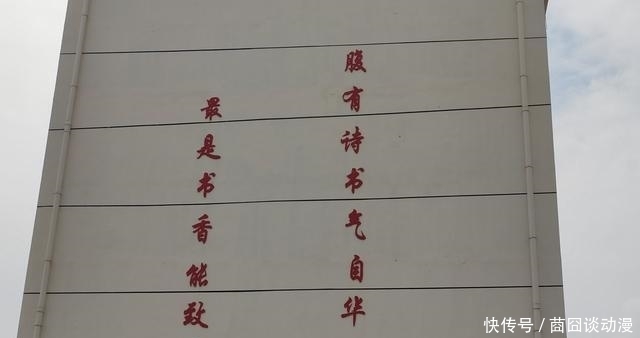 腹有诗书气自华
最是书香能致
快传号/茴囧谈动漫